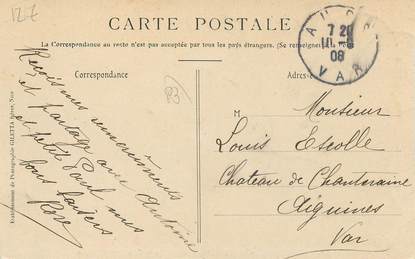 127
CARTE POSTALE
La Correspondance au recto n'est pas acceptée par tous les pays étrangers. (Se renseigner
Correspondance
Adresse
AUPS
7 20
08
VAR
Reçois mes remerciements
et partage avec Antoine
et petit Paul mes
bons baisers
Rose
M
Monsieur
Louis Escolle
Chateau de Chanteraine
Aiguines
Var
Etablissement de Photographie GILETTA frères, Nice